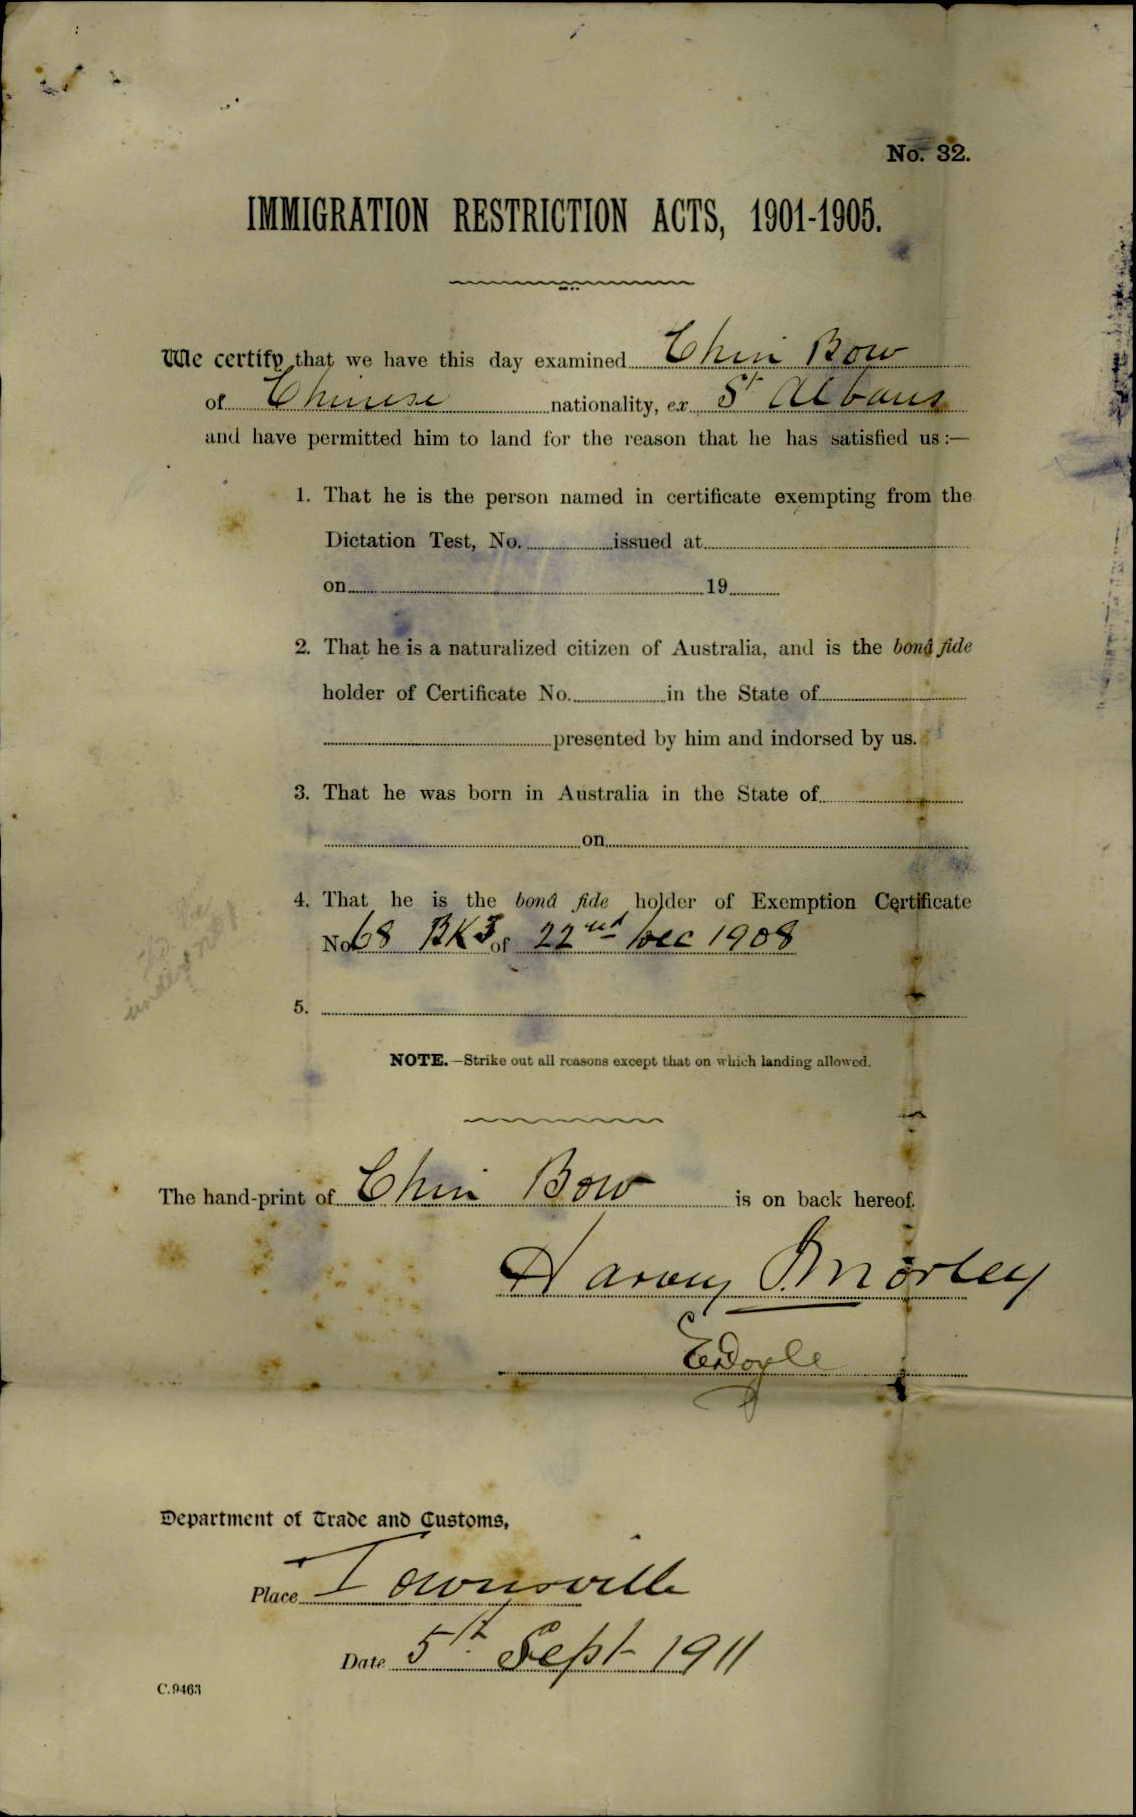 No. 32.
IMMIGRATION RESTRICTION ACTS, 1901-1905.
We certify that we have this day examined Chin Bow
of Chinese nationality, ex St Albans
and have permitted him to land for the reason that he has satisfied us :—
1. That he is the person named in certificate exempting from the
Dictation Test, No. issued at
on 19
2. That he is a naturalized citizen of Australia, and is the bonâ fide
holder of Certificate No. in the State of
presented by him and indorsed by us.
3. That he was born in Australia in the State of
on
4. That he is the bonâ fide holder of Exemption Certificate
No 68 BK3 of 22nd Dec 1908
5.
NOTE.—Strike out all reasons except that on which landing allowed.
The hand-print of Chin Bow is on back hereof.
Harvey J. Morley
Doyle
Department of Trade and Customs,
Place Townsville
Date 5th Sept 1911
C.9463